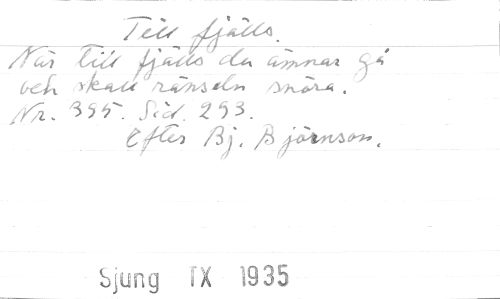 Till fjälls.
När till fjälls du ämnar gå
och skall ränseln snöra.
Nr. 395. Sid. 293.
Efter Bj. Björnson.
Sjung IX 1935